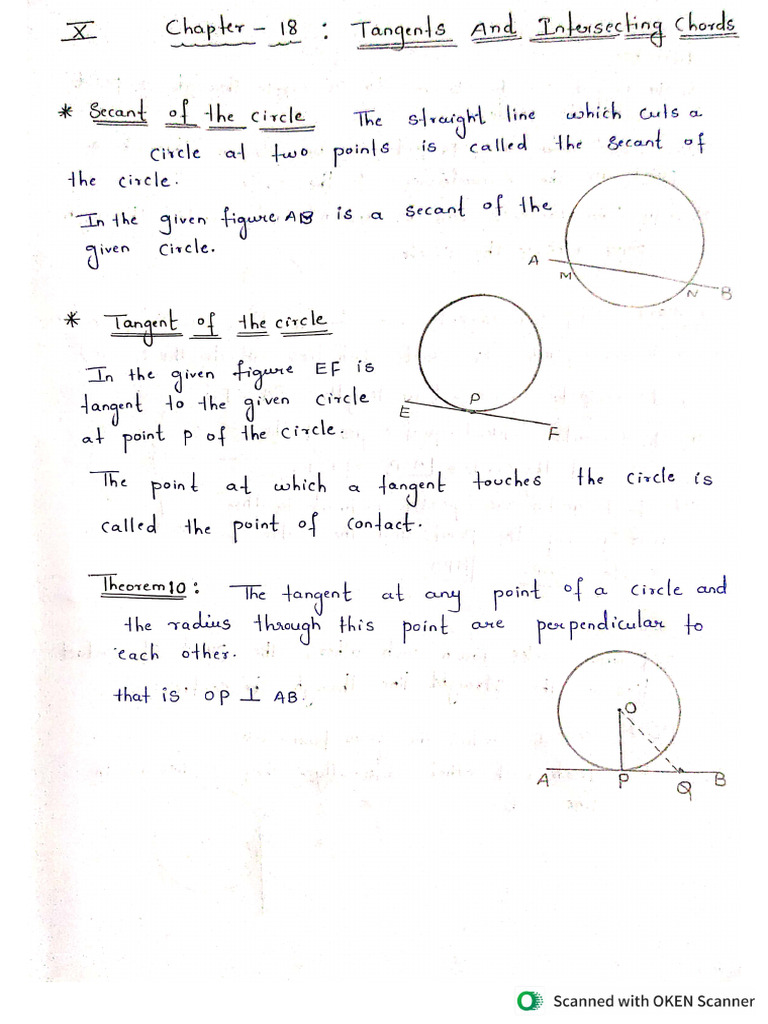 X Chapter - 18 : Tangents And Intersecting Chords
* Secant of the circle The straight line which cuts a
circle at two points is called the secant of
the circle.
In the given figure AB is a secant of the
given circle.
A
M
N
B
* Tangent of the circle
In the given figure EF is
tangent to the given circle
at point P of the circle.
E
P
F
The point at which a tangent touches the circle is
called the point of contact.
Theorem 10 : The tangent at any point of a circle and
the radius through this point are perpendicular to
each other.
that is OP ⊥ AB.
O
A
P
Q
B
Scanned with OKEN Scanner